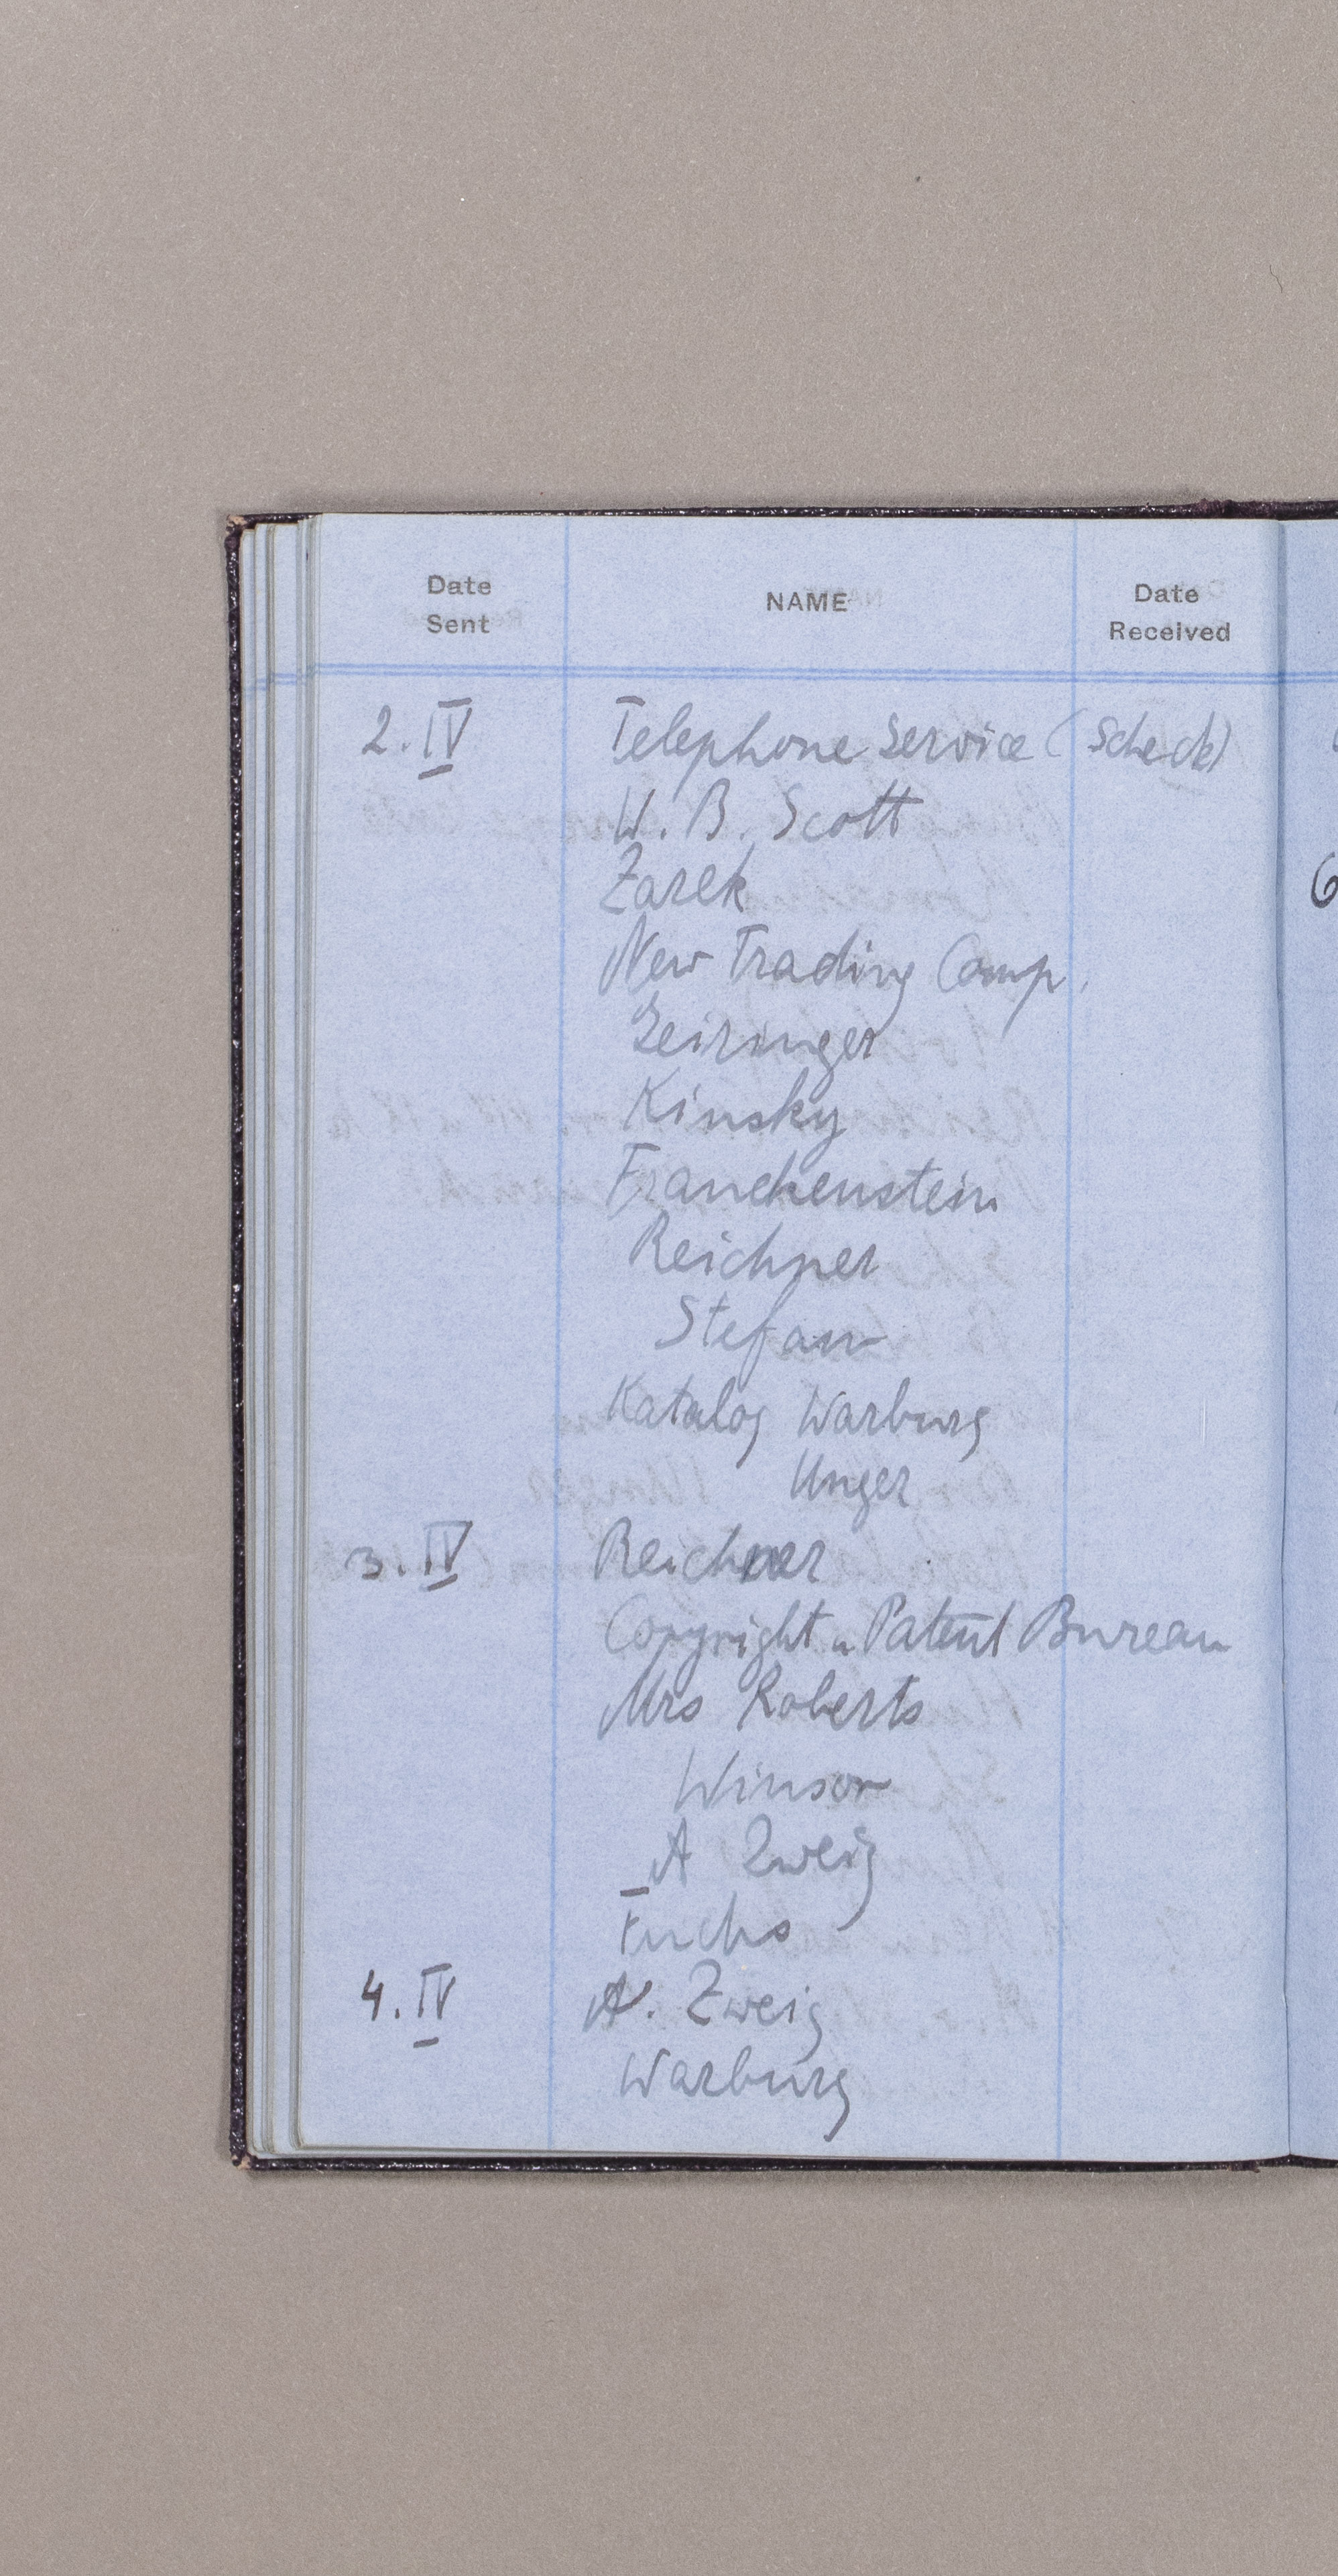 Date Sent NAME Date Received
2. IV Telephone Service (Scheck)
W. B. Scott
Zarek
New Trading Comp.
Geiringer
Kinsky
Franckenstein
Reichner
Stefan
Katalog Warburg
Unger
3. IV Reichner
Copyright u Patent Bureau
Mrs Roberts
Winsor
A Zweig
Fuchs
4. IV A. Zweig
Warburg